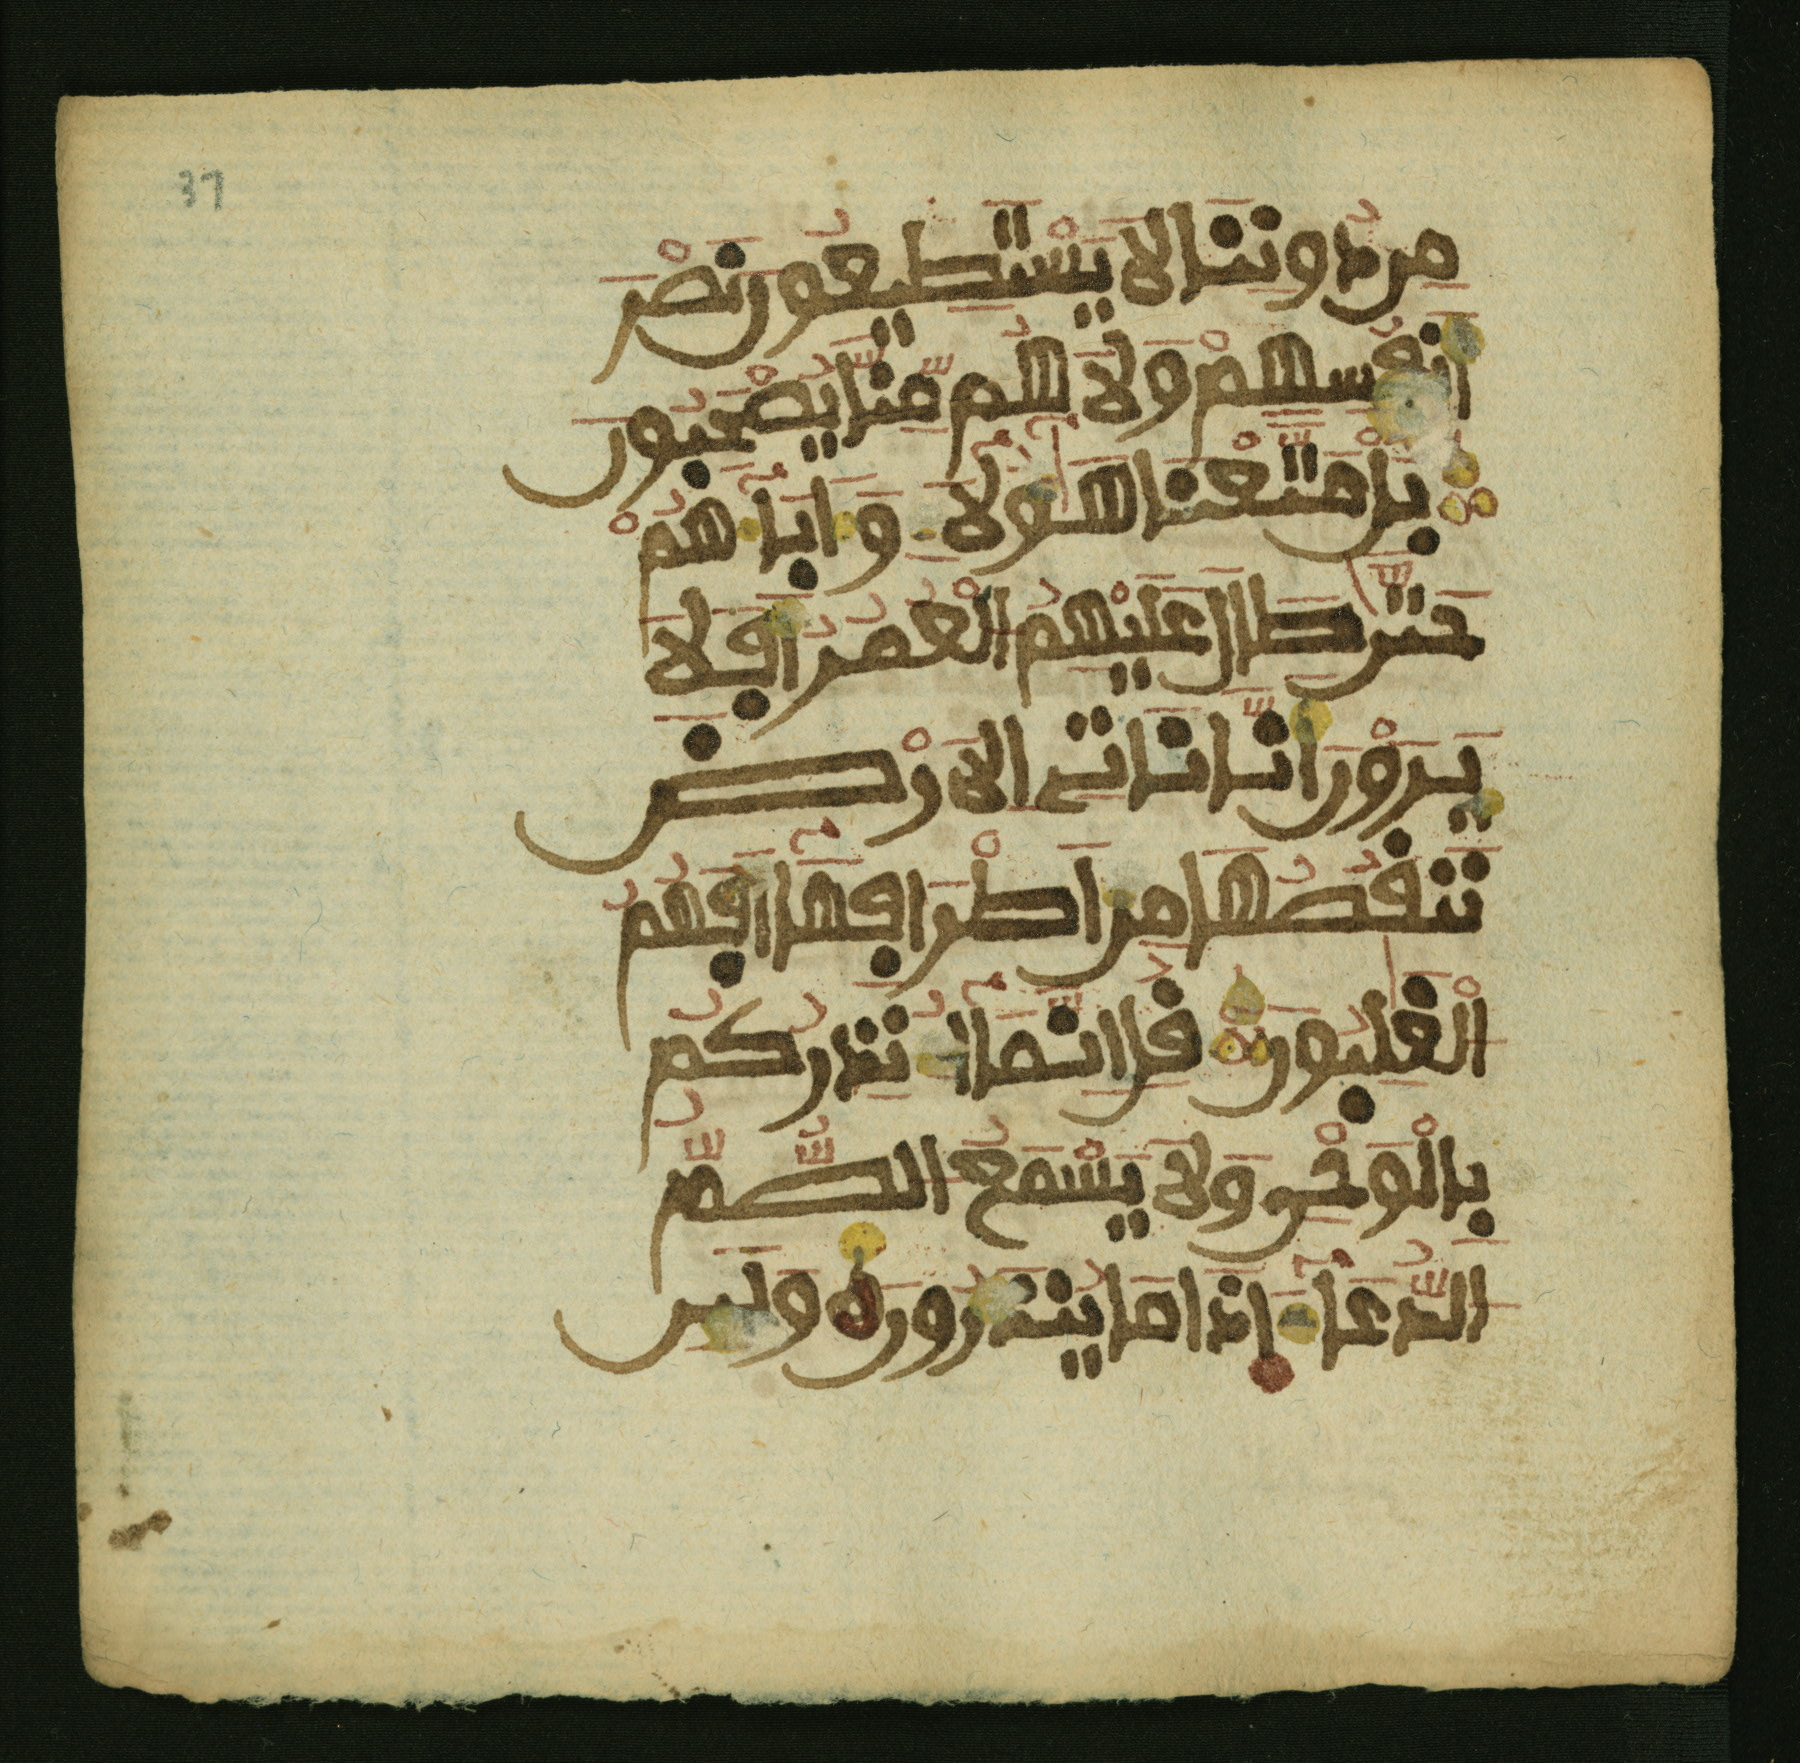 37
مِن دُونِنَا لَا يَسْتَطِيعُونَ نَصْرَ
أَنفُسِهِمْ وَلَا هُم مِّنَّا يُصْحَبُونَ
بَلْ مَتَّعْنَا هَٰؤُلَاءِ وَءَابَاءَهُمْ
حَتَّىٰ طَالَ عَلَيْهِمُ الْعُمُرُ أَفَلَا
يَرَوْنَ أَنَّا نَاتِي الَارْضَ
نَنقُصُهَا مِنَ اَطْرَافِهَا أَفَهُمُ
الْغَٰلِبُونَ قُلِ انَّمَا أُنذِرُكُم
بِالْوَحْيِ وَلَا يَسْمَعُ الصُّمُّ
الدُّعَاءَ إِذَا مَا يُنذَرُونَ وَلَئِن